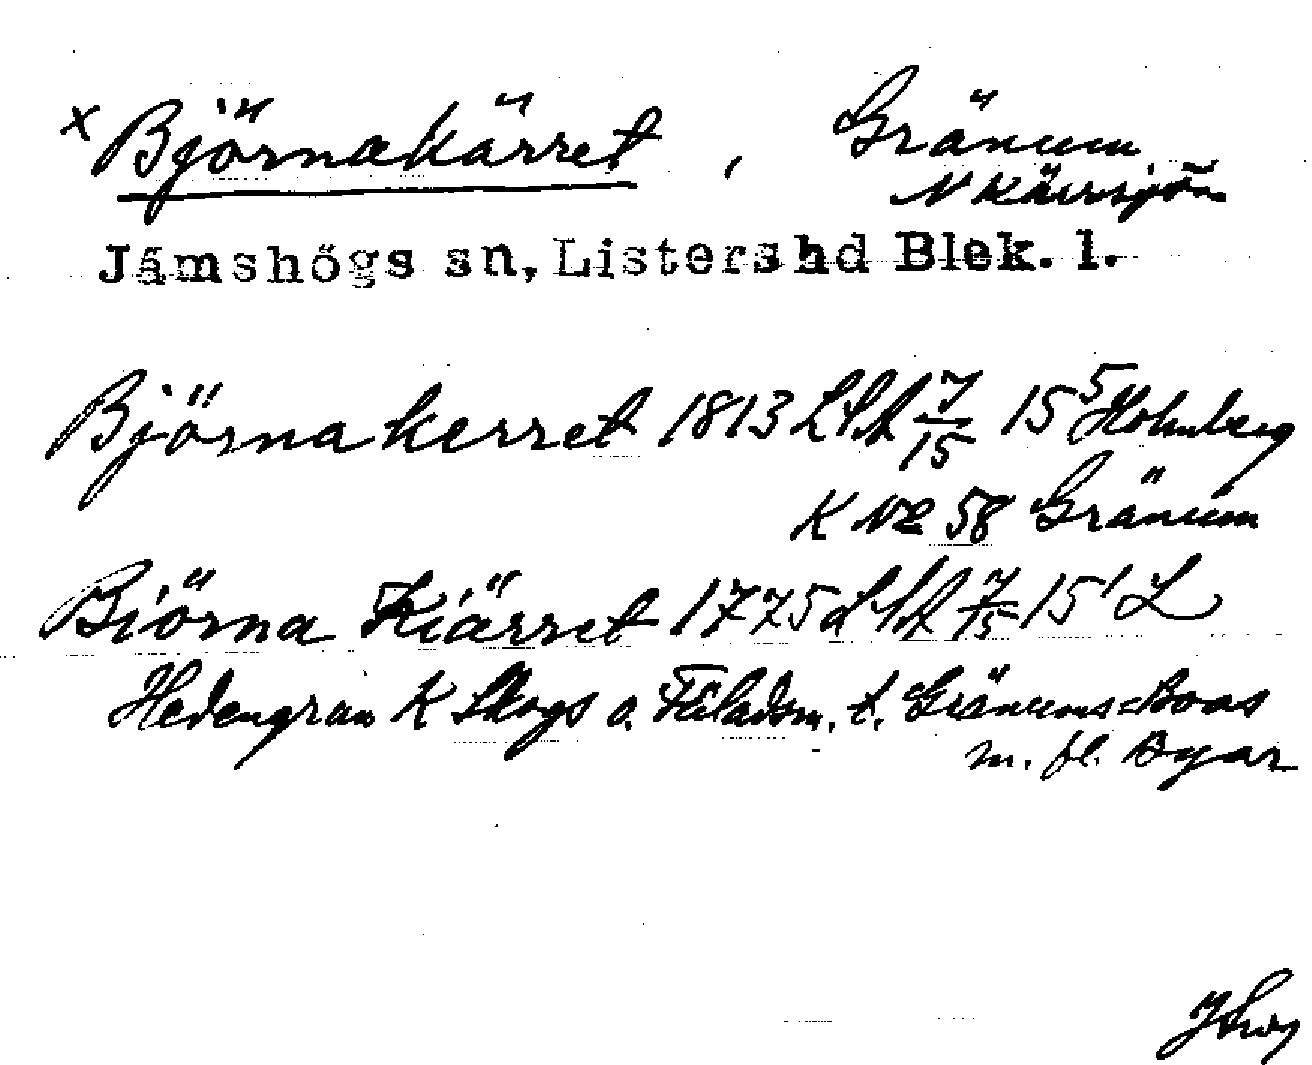 x Björnakärret, Gränum
N Kärrsjön
Jämshögs sn, Listers hd Blek. l.
Björnakerret 1813 LSA 7/15 15⁵ Holmberg
K № 58 Gränum
Biörna Kiärret 1775 LSA 7/15 15¹ L
Hedengran K Skogs o. Fäladsm. t. Gränums Boas
m. fl. Byar